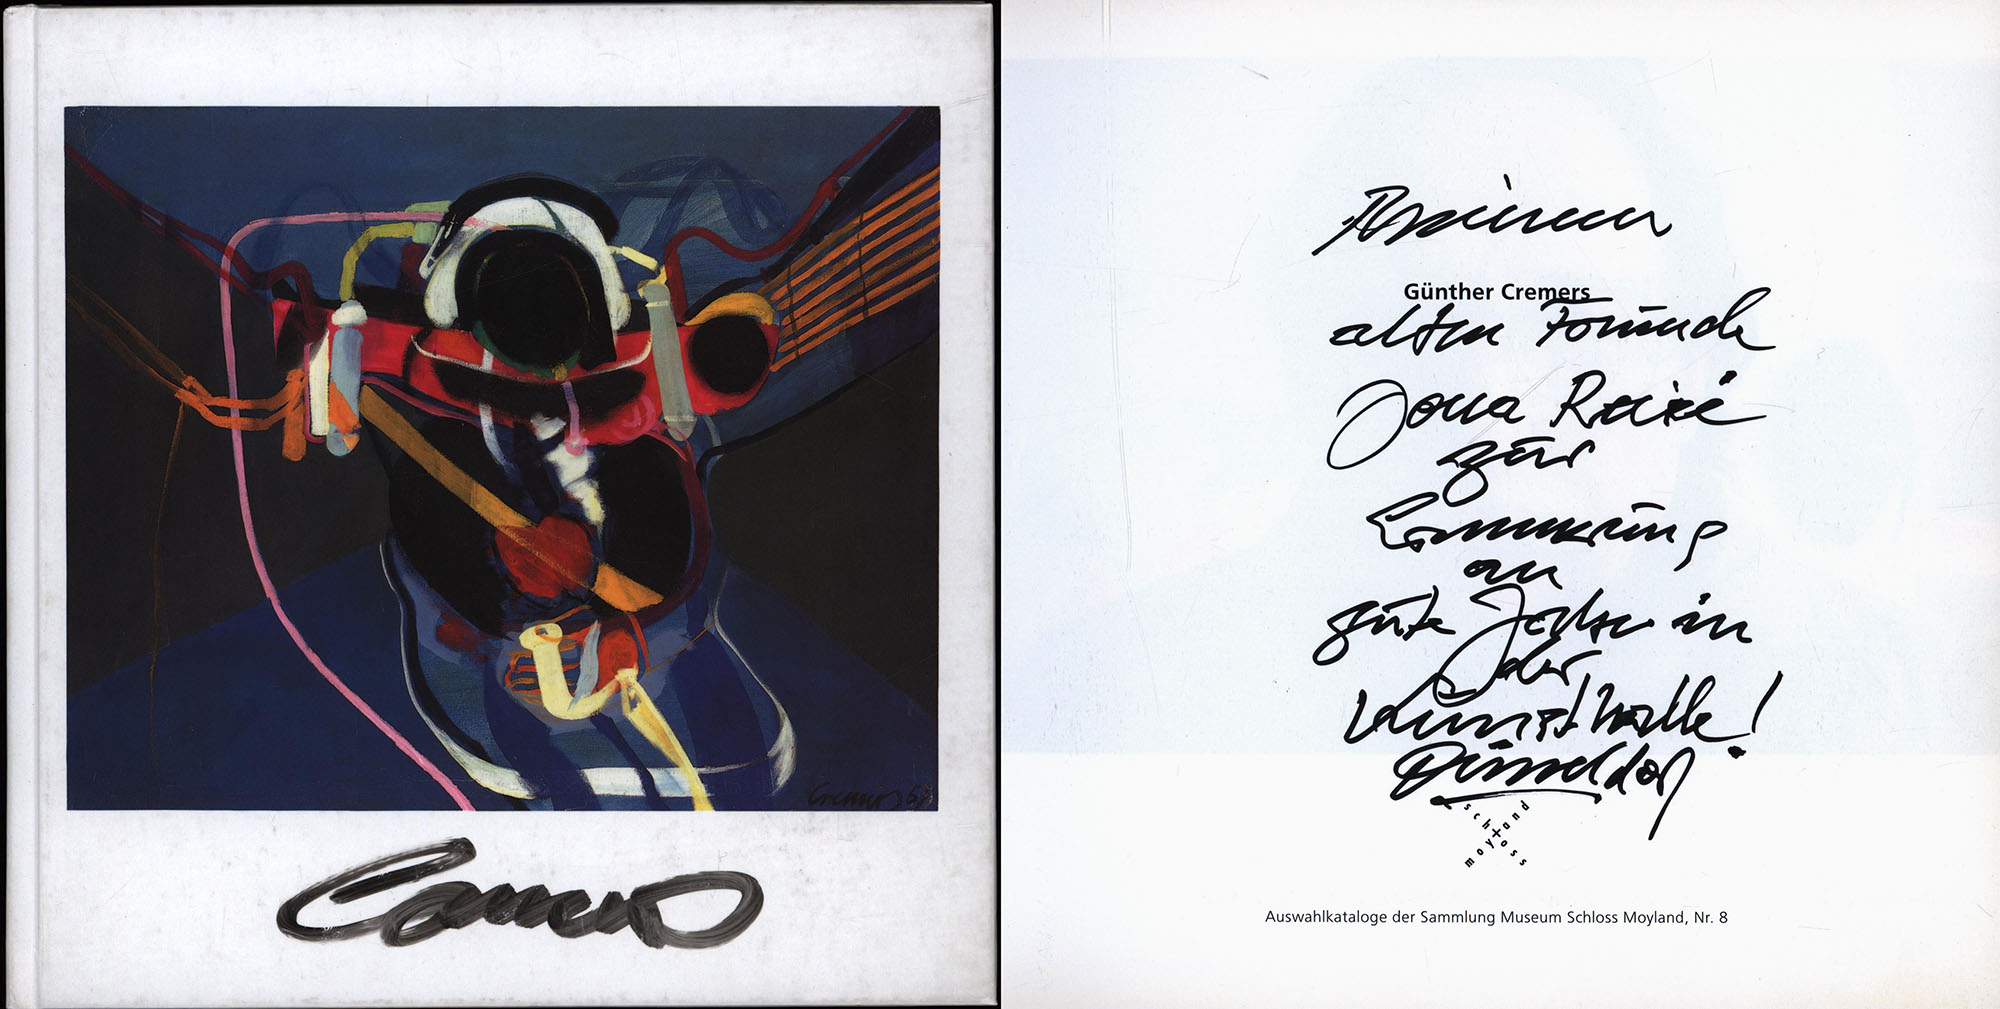 Cremers 67
Cremers
Meinem
Günther Cremers
alten Freunde
Jona
zur
Erinnerung
an
gute Jahre in
der
Kunsthalle!
Düsseldorf
schloss
moyland
Auswahlkataloge der Sammlung Museum Schloss Moyland, Nr. 8